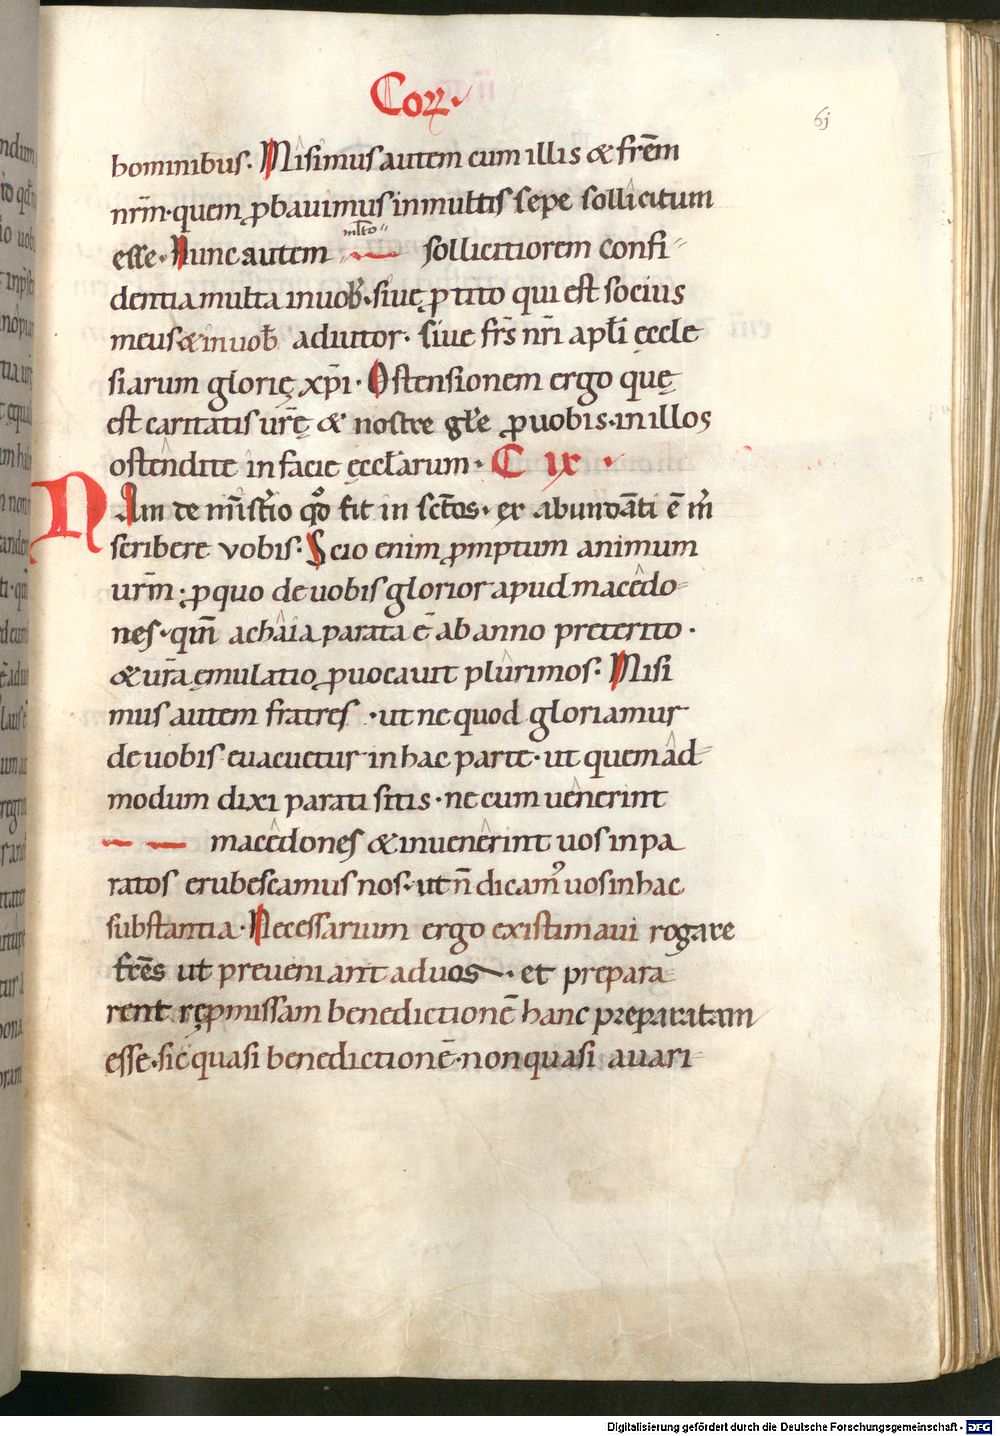 Corꝝ
61
hominibus. Misimus autem cum illis & frēm
nr̄m. quem ꝓbauimus in multis sepe sollicitum
esse. Nunc autem ml̄to sollicitiorem confi
dentia multa in uob. siue ꝓ tito qui est socius
meus & in uob̄ adiutor. siue fr̄s nr̄i apl̄i ęccle
siarum glorię xp̄i. Ostensionem ergo quę
est caritatis ur̄ę & nostre gl̄e ꝓ uobis. in illos
ostendite in facie ęccl̄arum. C IX
NAm de minist̄io qd̄ fit in sc̄tos. ex abundāti ē m̄
scribere vobis. Scio enim ꝓmptum animum
urm̄. ꝓ quo de uobis glorior apud macedo
nes. qm̄ achaia parata ē ab anno preterito.
& ur̄a ęmulatio ꝓuocauit plurimos. Misi
mus autem fratres. ut ne quod gloriamur
de uobis euacuetur in hac parte. ut quemad
modum dixi parati sitis. ne cum uenerint
macedones & inuenerint uos inpa
ratos erubescamus nos. ut n̄ dicam᷒ uos in hac
substantia. Necessarium ergo existimaui rogare
fr̄es ut preueniant ad uos. et prepara
rent rępmissam benedictionē hanc preparatam
esse. sic quasi benedictionē. non quasi auari
Digitalisierung gefördert durch die Deutsche Forschungsgemeinschaft - DFG